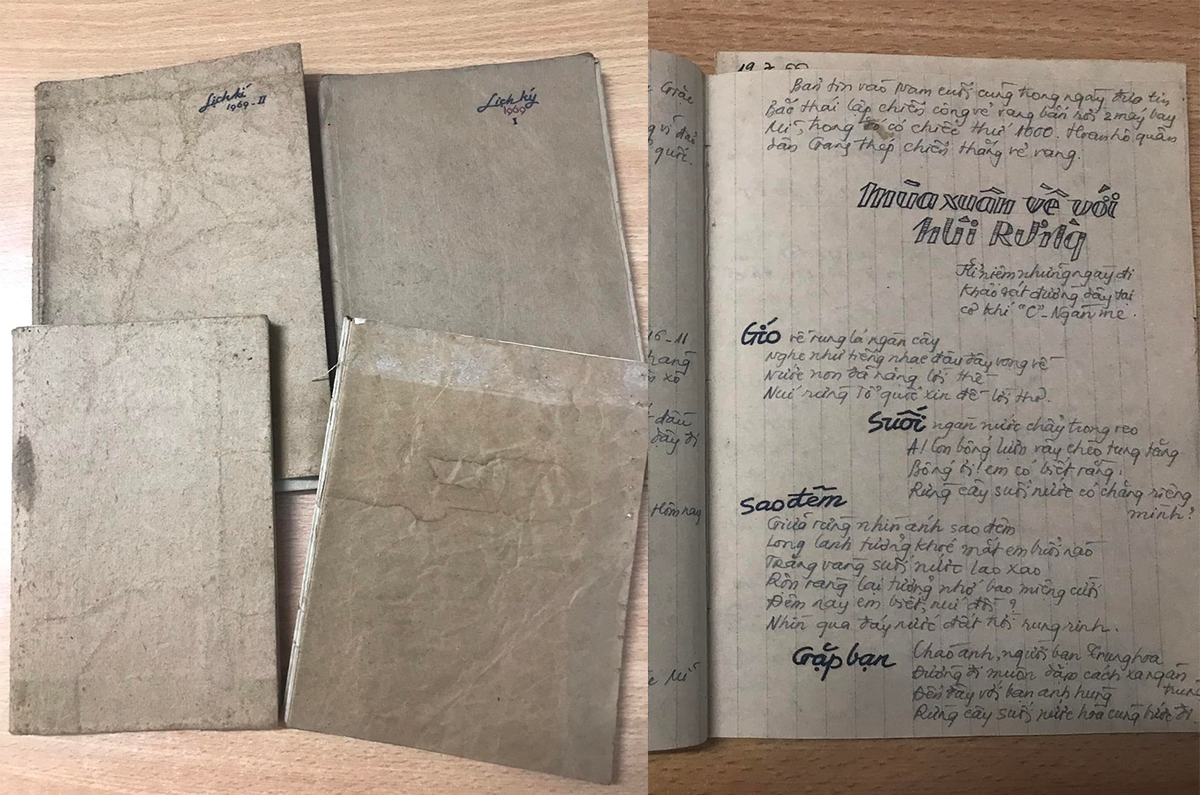 Lịch kí
1969-II
Lịch ký
1969
I
19.7.66
Bản tin vào Nam cuối cùng trong ngày đưa tin
Bắc thái lập chiến công vẻ vang bắn rơi 2 máy bay
Mĩ, trong đó có chiếc thứ 1000. Hoan hô quân
dân Gang thép chiến thắng vẻ vang.
Mùa xuân về với
núi Rừng
Kỉ niệm những ngày đi
khảo sát đường dây tại
cơ khí "C" - Ngân mẹ.
Gió về rung lá ngàn cây
Nghe như tiếng nhạc đâu đây vọng về
Nước non đã nặng lời thề
Núi rừng Tổ quốc xin để lời thơ.
Suối ngàn nước chảy trong reo
Ai lon bóng lườn vây chéo tung tăng
Bống ơi! em có biết rằng,
Rừng cây suối nước có chăng riêng
mình?
Sao đêm
Giữa rừng nhìn ánh sao đêm
Long lanh tưởng khoé mắt em buổi nào
Trăng vàng suối nước lao xao
Rộn ràng lại tưởng nhớ bao miệng cười
Đêm nay em biết, núi đồi?
Nhìn qua đáy nước đất trời rung rinh.
Gặp bạn
Chào anh, người bạn Trung hoa
Đường đi muôn dặm cách xa ngàn
trùng
Đến đây với bạn anh hùng
Rừng cây suối nước hoà cùng bước đi
Giặc
vì đã
quốc.
16-11
xô
dây đi
Hôm nay
Mĩ